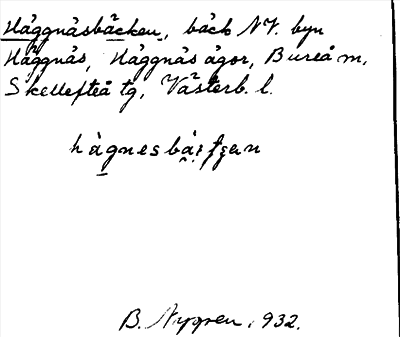 Häggnäsbäcken, bäck NV. byn
Häggnäs, Häggnäs ägor, Bureå m,
Skellefteå tg, Västerb. l.
B. Nygren, 1932.